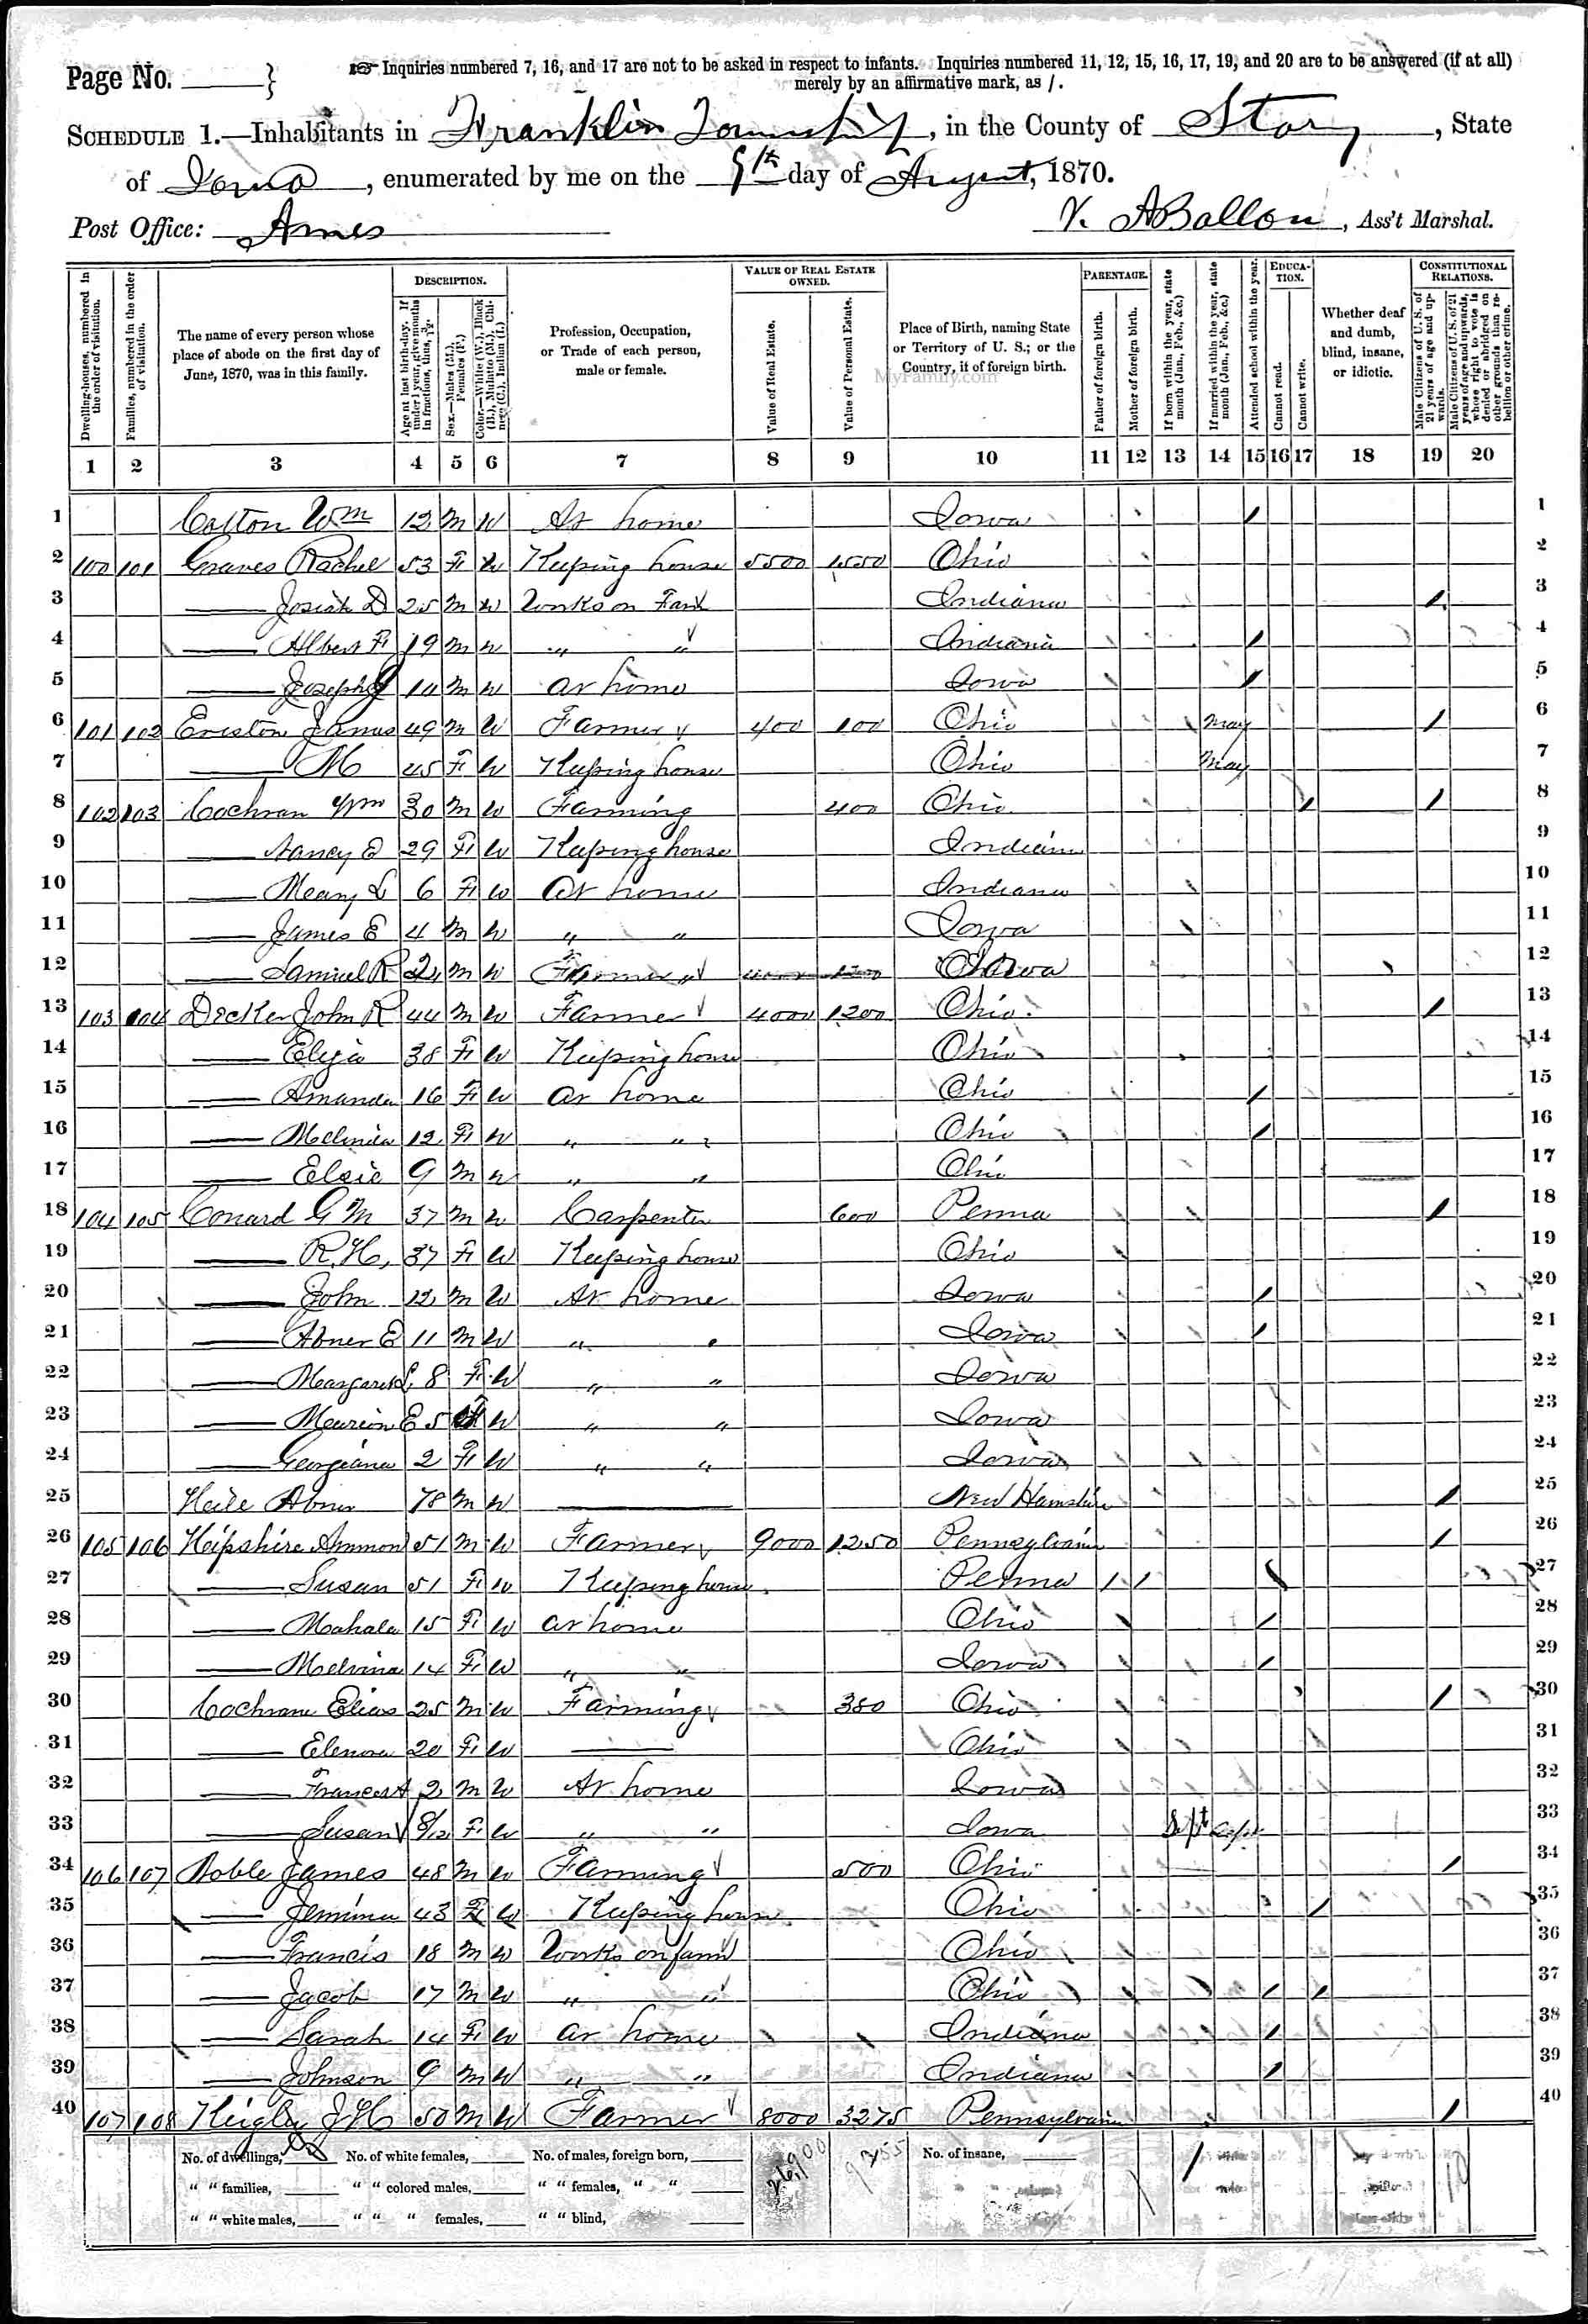 Page No. ______ } ☞ Inquiries numbered 7, 16, and 17 are not to be asked in respect to infants. Inquiries numbered 11, 12, 15, 16, 17, 19, and 20 are to be answered (if at all)
merely by an affirmative mark, as /.
SCHEDULE 1.—Inhabitants in Franklin Township, in the County of Story, State
of Iowa, enumerated by me on the 9th day of August, 1870.
Post Office: Ames V. A Ballou, Ass't Marshal.
Dwelling-houses, numbered in the order of visitation.
Families, numbered in the order of visitation.
The name of every person whose place of abode on the first day of June, 1870, was in this family.
DESCRIPTION.
Age at last birth-day. If under 1 year, give months in fractions, thus, 3/12.
Sex.—Males (M.), Females (F.)
Color.—White (W.), Black (B.), Mulatto (M.), Chinese (C.), Indian (I.)
Profession, Occupation, or Trade of each person, male or female.
VALUE OF REAL ESTATE OWNED.
Value of Real Estate.
Value of Personal Estate.
Place of Birth, naming State or Territory of U. S.; or the Country, if of foreign birth.
MyFamily.com
PARENTAGE.
Father of foreign birth.
Mother of foreign birth.
If born within the year, state month (Jan., Feb., &c.)
If married within the year, state month (Jan., Feb., &c.)
Attended school within the year.
EDUCATION.
Cannot read.
Cannot write.
Whether deaf and dumb, blind, insane, or idiotic.
CONSTITUTIONAL RELATIONS.
Male Citizens of U. S. of 21 years of age and upwards.
Male Citizens of U. S. of 21 years of age and upwards, whose right to vote is denied or abridged on other grounds than rebellion or other crime.
1 2 3 4 5 6 7 8 9 10 11 12 13 14 15 16 17 18 19 20
1 Colton Wm 12 M W At home Iowa / 1
2 100 101 Graves Rachel 53 F W Keeping house 5500 1550 Ohio 2
3 —— Josiah D 25 M W Works on Farm Indiana / 3
4 —— Albert F 19 M W " " Indiana / 4
5 —— Joseph G 14 M W At home Iowa / 5
6 101 102 Eviston James 49 M W Farmer 400 100 Ohio May / 6
7 —— M 45 F W Keeping house Ohio May 7
8 102 103 Cochran Wm 30 M W Farming 400 Ohio / / 8
9 —— Nancy E 29 F W Keeping house Indiana 9
10 —— Meary L 6 F W At home Indiana 10
11 —— James E 4 M W " " Iowa 11
12 —— Samuel R 2 M W Farmer " 4000 1200 Iowa 12
13 103 104 Decker John R 44 M W Farmer 4000 1200 Ohio / 13
14 —— Eliza 38 F W Keeping house Ohio 14
15 —— Amanda 16 F W At home Ohio / 15
16 —— Melinda 12 F W " " Ohio / 16
17 —— Elsie 9 M W " " Ohio 17
18 104 105 Conard G M 37 M W Carpenter 600 Penna / 18
19 —— R. H. 37 F W Keeping house Ohio 19
20 —— John 12 M W At home Iowa / 20
21 —— Abner E 11 M W " " Iowa / 21
22 —— Margaret L 8 F W " " Iowa 22
23 —— Mearion E 5 F W " " Iowa 23
24 —— Georgiana 2 F W " " Iowa 24
25 Heile Abner 78 M W —— New Hamshire / 25
26 105 106 Hipshire Ammon 51 M W Farmer 9000 1250 Pennsylvania / 26
27 —— Susan 51 F W Keeping house Penna / / / 27
28 —— Mahala 15 F W At home Ohio / 28
29 —— Melvina 14 F W " " Iowa / 29
30 Cochran Elias 25 M W Farming 380 Ohio / 30
31 —— Elenora 20 F W —— Ohio 31
32 —— Frances A 2 M W At home Iowa 32
33 —— Susan V 8/12 F W " " Iowa Sept 33
34 106 107 Noble James 48 M W Farming 500 Ohio / 34
35 —— Jemima 43 F W Keeping house Ohio / 35
36 —— Francis 18 M W Works on farm Ohio 36
37 —— Jacob 17 M W " " Ohio / / 37
38 —— Sarah 14 F W At home Indiana / 38
39 —— Johnson 9 M W " " Indiana / 39
40 107 108 Heigley J H 50 M W Farmer 8000 3275 Pennsylvania / 40
No. of dwellings, ____ No. of white females, ____ No. of males, foreign born, ____ 26,900 9755 No. of insane, ____ 10
" " families, ____ " " colored males, ____ " " females, " " ____
" " white males, ____ " " " females, ____ " " blind, ____